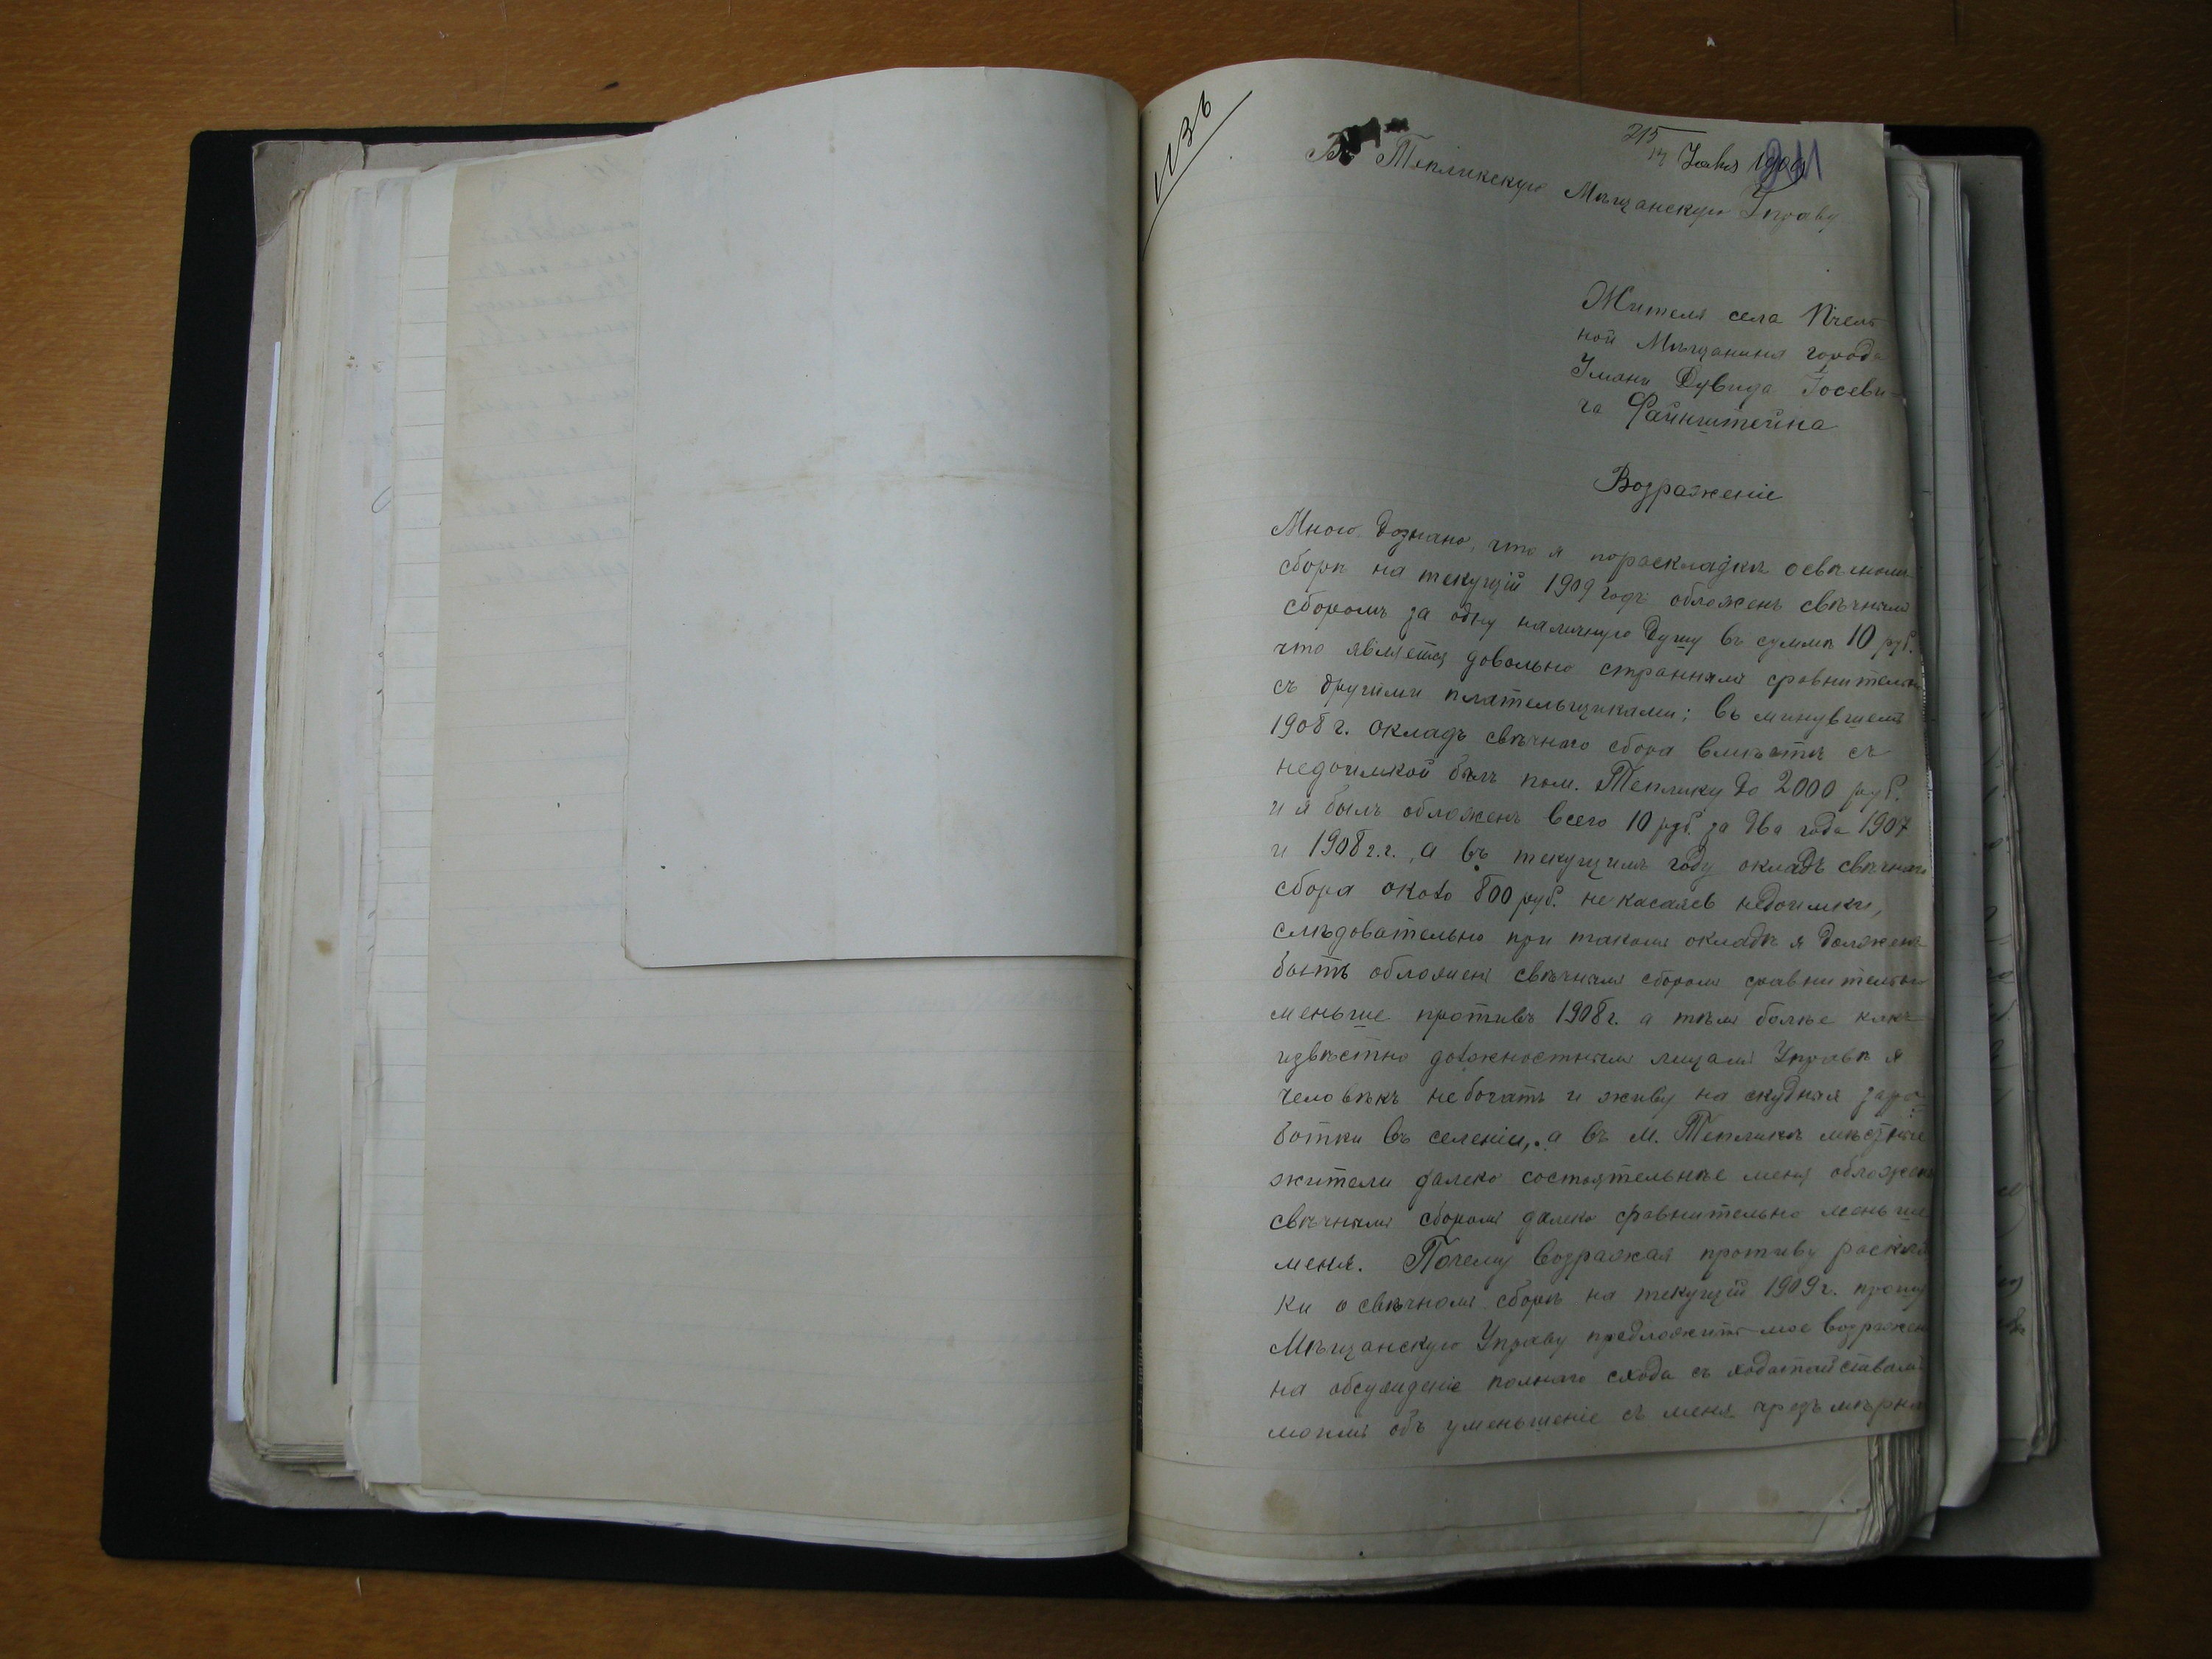 215
14 Iюля 1909
211
Въ Тепликскую Мѣщанскую Управу
Жителя села Пчель
ной Мѣщанина города
Умани Дувида Iосеви-
ча Файнштейна
Возраженіе
Мною дознано, что я пораскладкѣ освѣчномъ
сборѣ на текущій 1909 годъ обложенъ свѣчнымъ
сборомъ за одну наличную душу въ суммѣ 10 руб.
что является довольно страннымъ сравнительно
съ другими плательщиками; въ минувшемъ
1908 г. окладъ свѣчного сбора вмѣстѣ съ
недоимкой былъ пом. Теплику до 2000 руб.
и я былъ обложенъ всего 10 руб. за два года 1907
и 1908 г.г., а въ текущимъ году окладъ свѣчного
сбора около 800 руб. некасаясь недоимки,
слѣдовательно при такомъ окладѣ я долженъ
быть обложенъ свѣчнымъ сборомъ сравнительно
меньше противъ 1908 г. а тѣмъ болѣе какъ
извѣстно должностнымъ лицамъ Управѣ я
человѣкъ небогатъ и живу на скудныя зара-
ботки въ селеніи, а въ м. Тепликѣ мѣстные
жители далеко состоятельнѣе меня обложены
свѣчнымъ сборомъ далеко сравнительно меньше
меня. Почему возражая противу расклад
ки о свѣчномъ сборѣ на текущій 1909 г. прошу
Мѣщанскую Управу предложить мое возражен
на обсужденіе полнаго схода съ ходатайствомъ
моимъ объ уменьшеніе съ меня чрезъмѣрн